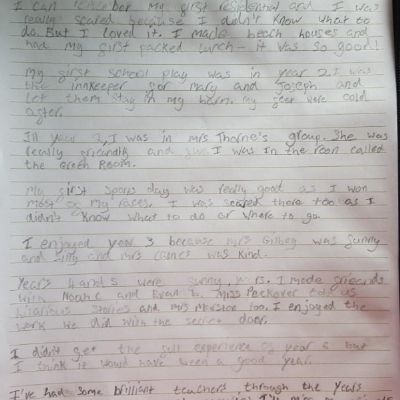 I can remember my first residential and I was
really scared because I didn't know what to
do. But I loved it. I made beach houses and
had my first packed lunch - it was so good!
My first school play was in year 2. I was
the innkeeper for Mary and Joseph and
let them stay in my barn. My feet were cold
after.
In year 2, I was in Mrs Thorne's group. She was
really friendly and I was in the room called
the Green Room.
My first sports day was really good as I won
most of my races. I was scared there too as I
didn't know what to do or where to go.
I enjoyed year 3 because Mrs was funny
and and Mrs was kind.
Years 4 and 5 were funny, . I made friends
with Noah C and . Miss Peckover told us
hilarious stories and Mrs too. I enjoyed the
work we did with the secret door.
I didn't get the full experience of year 6 but
I think it would have been a good year.
I've had some brilliant teachers through the years